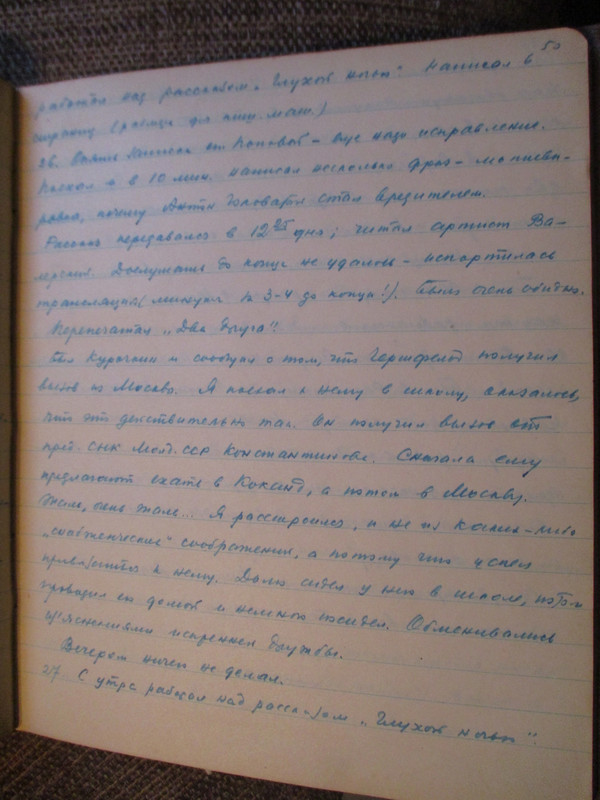 50
работал над рассказом „Глухой ночью“. Написал 6
страниц (разница для пиш. маш.)
26. Взяты записки от Поповой – еще надо исправление.
Поехал и в 10 мин. написал несколько фраз – мотивиро-
ровка, почему Анти Головатый стал вредителем.
Рассказ передавался в 12 дня; читал артист Ва-
лерский. Дослушать до конца не удалось – испортилась
трансляция (минуты за 3-4 до конца!). Было очень обидно.
Перепечатал „Два друга“.
Был Курочкин и сообщил о том, что Гершфельд получил
вызов из Москвы. Я поехал к нему в школу, оказалось,
что это действительно так. Он получил вызов от
пред. СНК Молд. ССР Константинова. Сначала ему
предлагают ехать в Коканд, а потом в Москву.
Жаль, очень жаль... Я расстроился, и не из каких-либо
„снабженческих“ соображений, а потому что успел
привязаться к нему. Долго сидел у них в школе, потом
проводил его домой и немного посидел. Обменивались
из'яснениями искренней дружбы.
Вечером ничего не делал.
27 С утра работал над рассказом „Глухой ночью“.